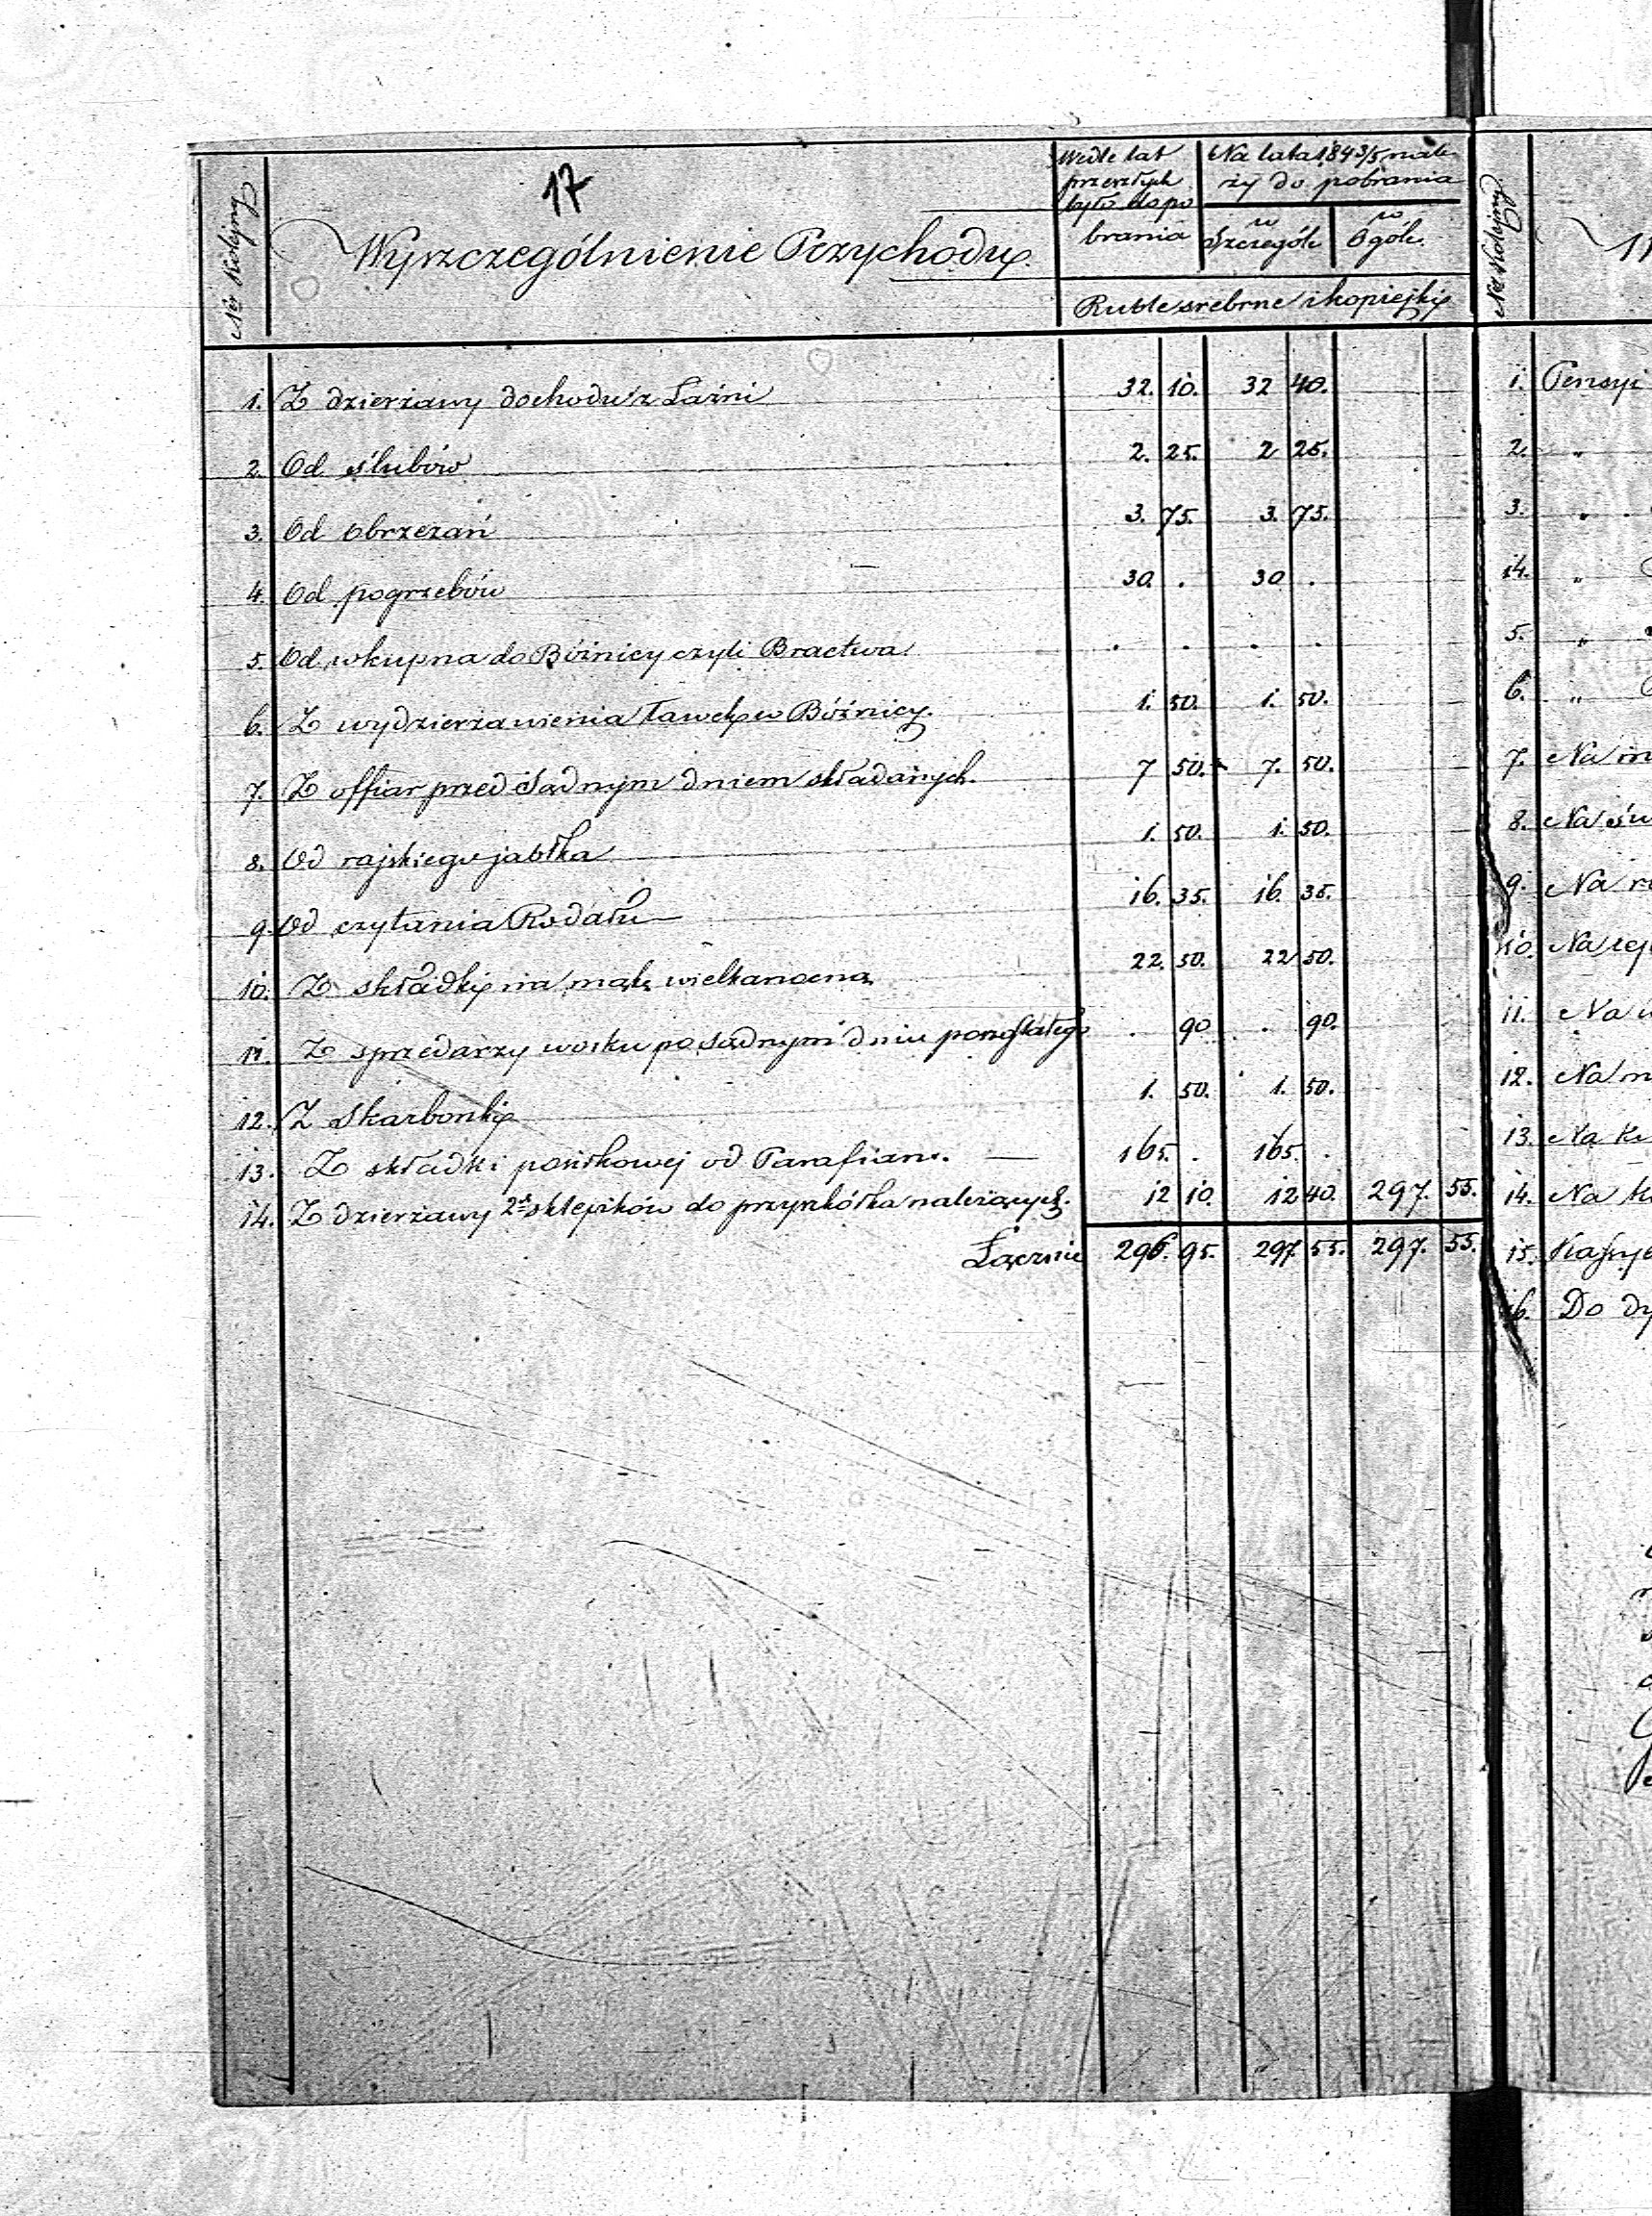 17
Nr Kolejny
Wyszczególnienie Przychodu.
Wedle lat
przeszłych
było do po
brania
Na lata 1843/5 nale
ży do pobrania
w
Szczególe
w
Ogóle.
Ruble srebrne i kopiejki
1. Z dzierżawy dochodu z Łaźni 32. 10. 32 40.
2. Od ślubów 2. 25. 2 25.
3. Od obrzezań 3. 75. 3. 75.
4. Od pogrzebów 30. . 30 .
5. Od wkupna do Bóżnicy czyli Bractwa . . . .
6. Z wydzierżawienia ławek w Bóżnicy. 1. 50. 1. 50.
7. Z offiar przed Sądnym dniem składanych. 7 50. 7. 50.
8. Od rajskiego jabłka 1. 50. 1. 50.
9. Od czytania Rodału 16. 35. 16. 35.
10. Z składki na mąkę wielkanocną 22. 50. 22 50.
11. Z sprzedarzy wosku po sądnym dniu pozostałego . 90 . 90.
12. Z Skarbonki 1. 50. 1. 50.
13. Z składki posiłkowej od Parafian. — 165. . 165. .
14. Z dzierżawy 2ch sklepików do przyszkółka należących. 12 10. 12 40. 297. 55.
Łącznie 296. 95. 297 55. 297. 55.
Nr Kolejny
1. Pensyi
2. „
3. „
4. „
5. „
6. „
7. Na
8. Na
9. Na
10. Na
11. Na
12. Na
13. Na
14. Na
15.
16. Do